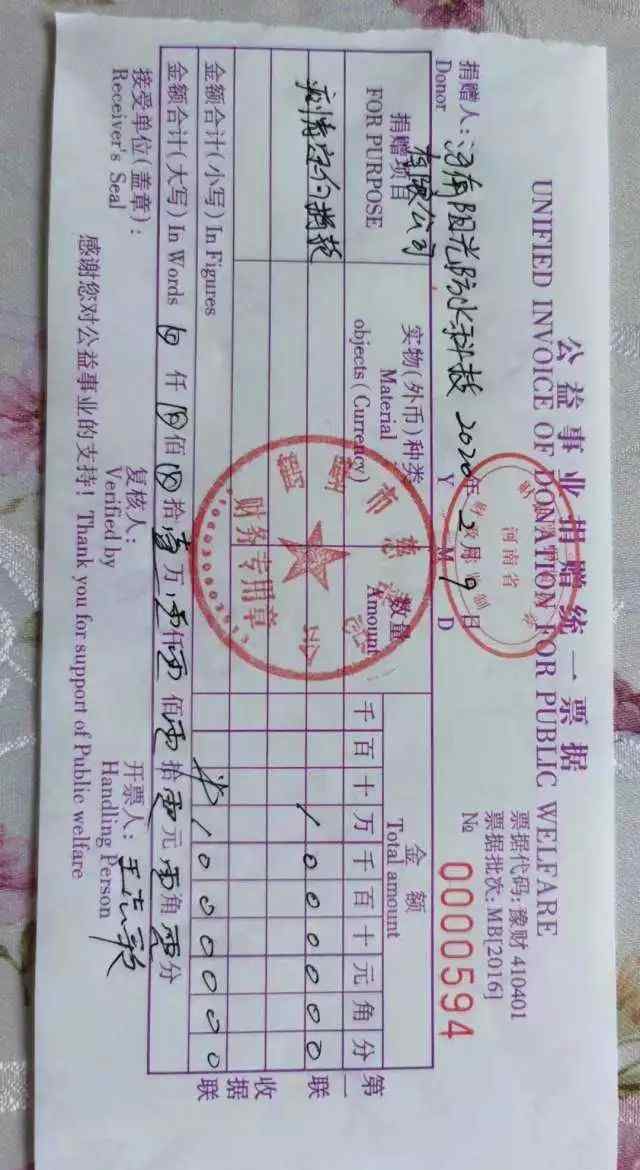 公益事业捐赠统一票据
UNIFIED INVOICE OF DONATION FOR PUBLIC WELFARE
河南省
票据代码:豫财 410401
票据批次:MB[2016]
№ 0000594
捐赠人:河南阳光防水科技有限公司 2020年2月9日
Donor Y M D
捐赠项目 实物(外币)种类 数量 金额
FOR PURPOSE Material objects(Currency) Amount Total amount
千百十万千百十元角分
疫情定向捐款 1000000
金额合计(小写) In Figures ¥1000000
金额合计(大写) In Words ⊗仟⊗佰⊗拾壹万零仟零佰零拾零元零角零分
财务专用章
第一联 收据联
接受单位(盖章): 复核人: 开票人:
Receiver's Seal Verified by Handling Person
感谢您对公益事业的支持! Thank you for support of Public welfare